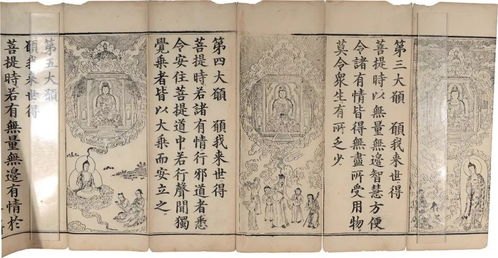 第三大願　願我來世得
菩提時以無量無邊智慧方便
令諸有情皆得無盡所受用物
莫令衆生有所乏少
第四大願　願我來世得
菩提時若諸有情行邪道者悉
令安住菩提道中若行聲聞獨
覺乘者皆以大乘而安立之
第五大願
願我來世得
菩提時若有無量無邊有情於